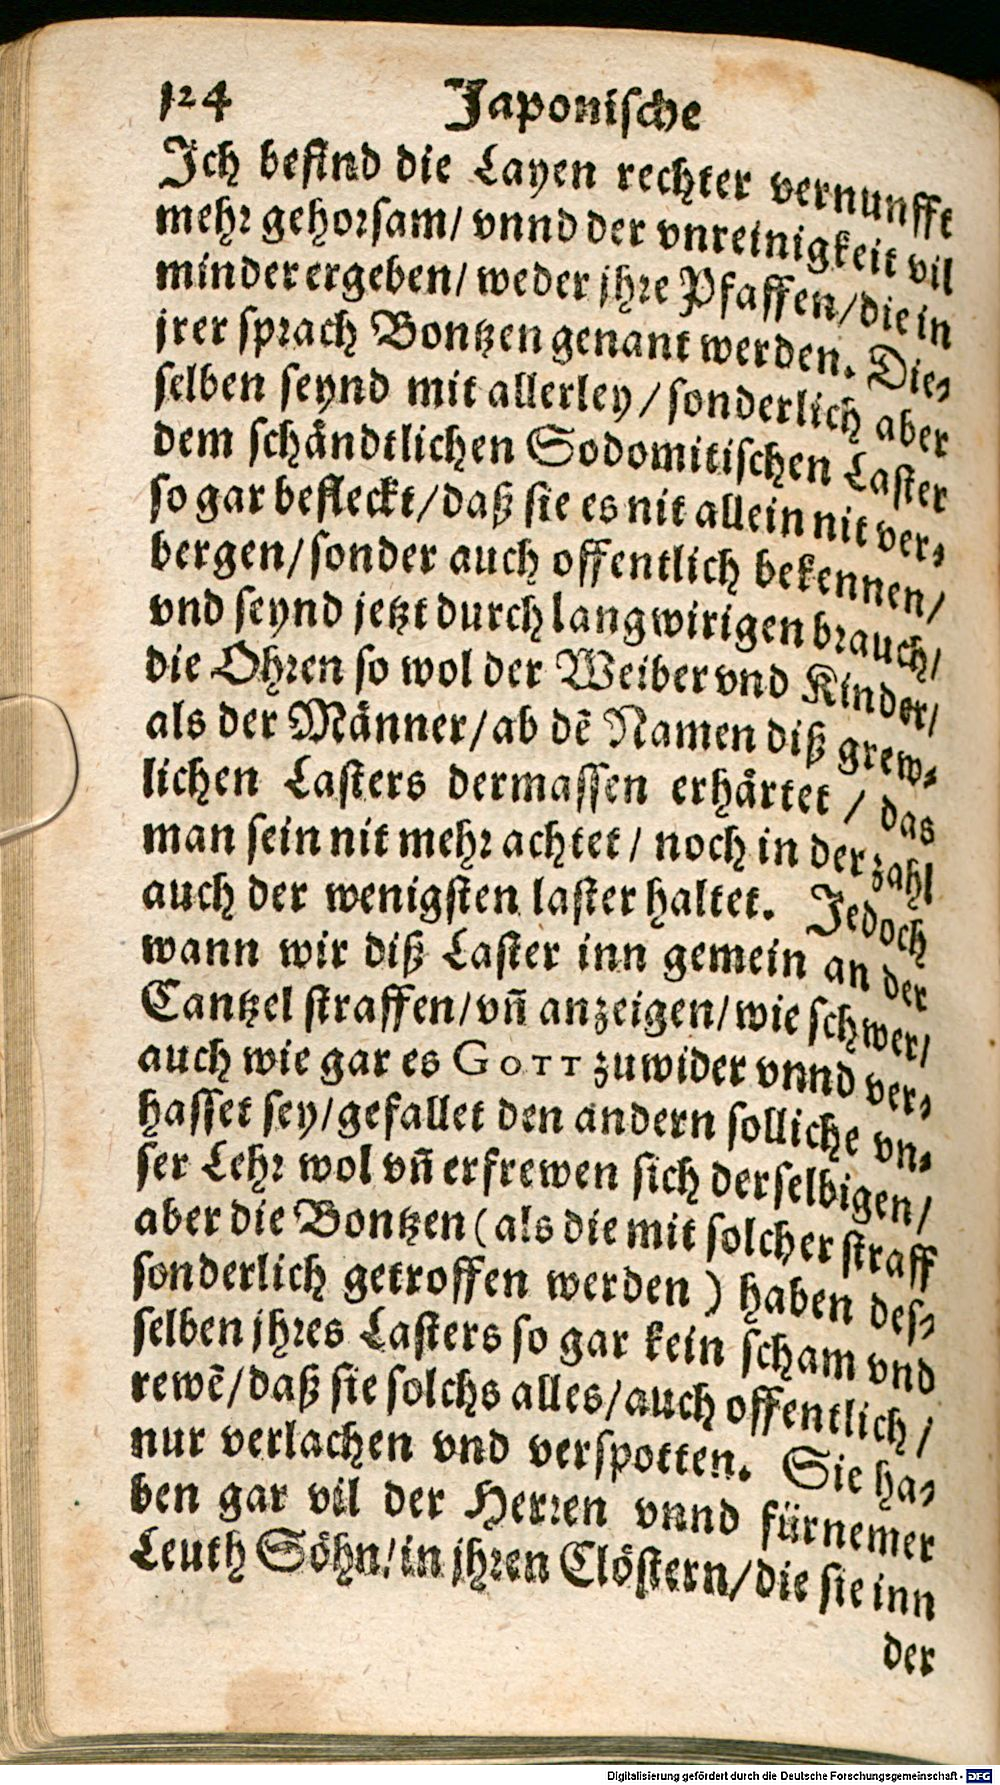 124 Japonische
Ich befind die Layen rechter vernunfft
mehr gehorsam/ vnnd der vnreinigkeit vil
minder ergeben/ weder jhre Pfaffen/ die in
jrer sprach Bontzen genant werden. Die-
selben seynd mit allerley / sonderlich aber
dem schåndtlichen Sodomitischen Laster
so gar befleckt/ daß sie es nit allein nit ver-
bergen/ sonder auch offentlich bekennen/
vnd seynd jetzt durch langwirigen brauch/
die Ohren so wol der Weiber vnd Kinder/
als der Männer/ ab dẽ Namen diß grew-
lichen Lasters dermassen erhårtet / das
man sein nit mehr achtet / noch in der zahl
auch der wenigsten laster haltet. Jedoch
wann wir diß Laster inn gemein an der
Cantzel straffen/ vñ anzeigen/ wie schwer/
auch wie gar es GOTT zuwider vnnd ver-
hasset sey/ gefallet den andern solliche vn-
ser Lehr wol vñ erfrewen sich derselbigen/
aber die Bontzen ( als die mit solcher straff
sonderlich getroffen werden ) haben des-
selben jhres Lasters so gar kein scham vnd
rewẽ/ daß sie solchs alles/ auch offentlich /
nur verlachen vnd verspotten. Sie ha-
ben gar vil der Herren vnnd fürnemer
Leuth Söhn/ in jhren Clöstern/ die sie inn
der
Digitalisierung gefördert durch die Deutsche Forschungsgemeinschaft - DFG